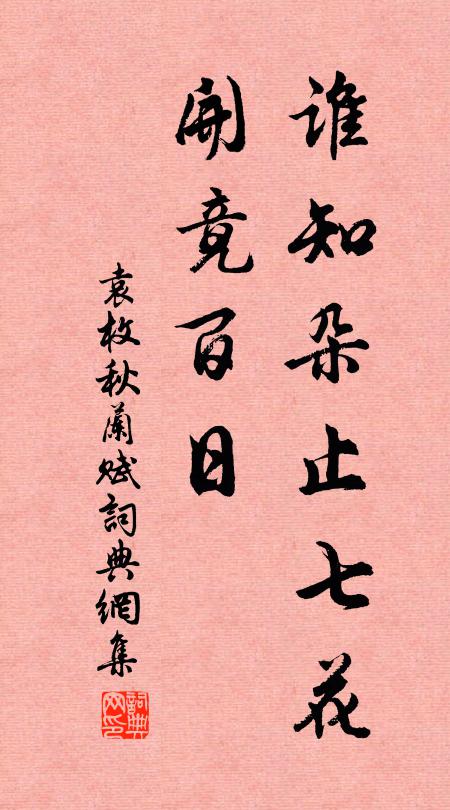 誰知朵止七花
開竟百日
袁枚秋蘭賦詞典網集
詞典网印